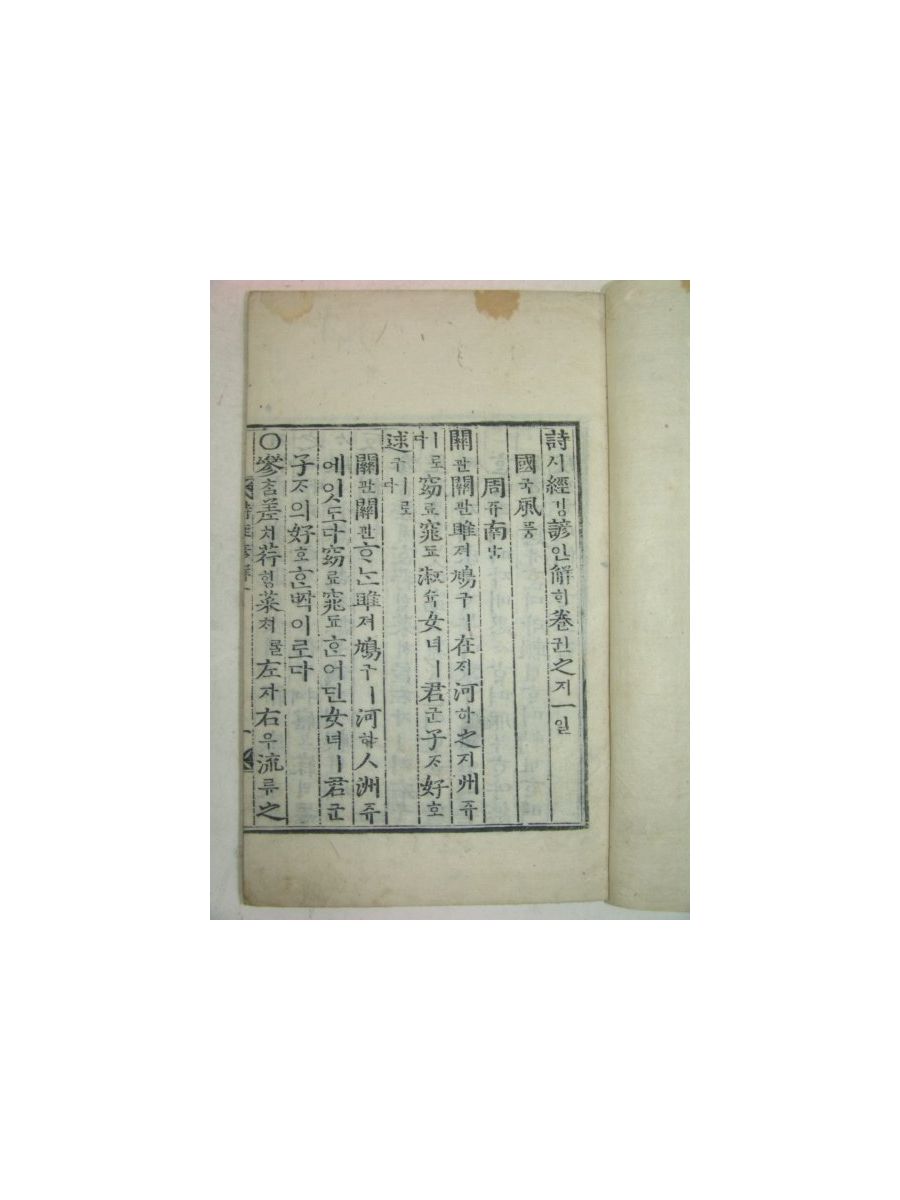 詩시經깅諺언解ᄒᆡ卷권之지一일
國국風풍
周쥬南남
關관關관雎져鳩구ㅣ在ᄌᆡ河하之지洲쥬
ㅣ로다窈요窕됴淑슉女녀ㅣ君군子ᄌᆞ好호
逑구ㅣ로다
關관關관ᄒᆞᄂᆞᆫ雎져鳩구ㅣ河하ㅅ洲쥬
에잇도다窈요窕됴ᄒᆞᆫ어딘女녀ㅣ君군
子ᄌᆞ의好호ᄒᆞᆫᄧᅡᆨ이로다
○參참差치荇ᄒᆡᆼ菜ᄎᆡ를左자右우流류之